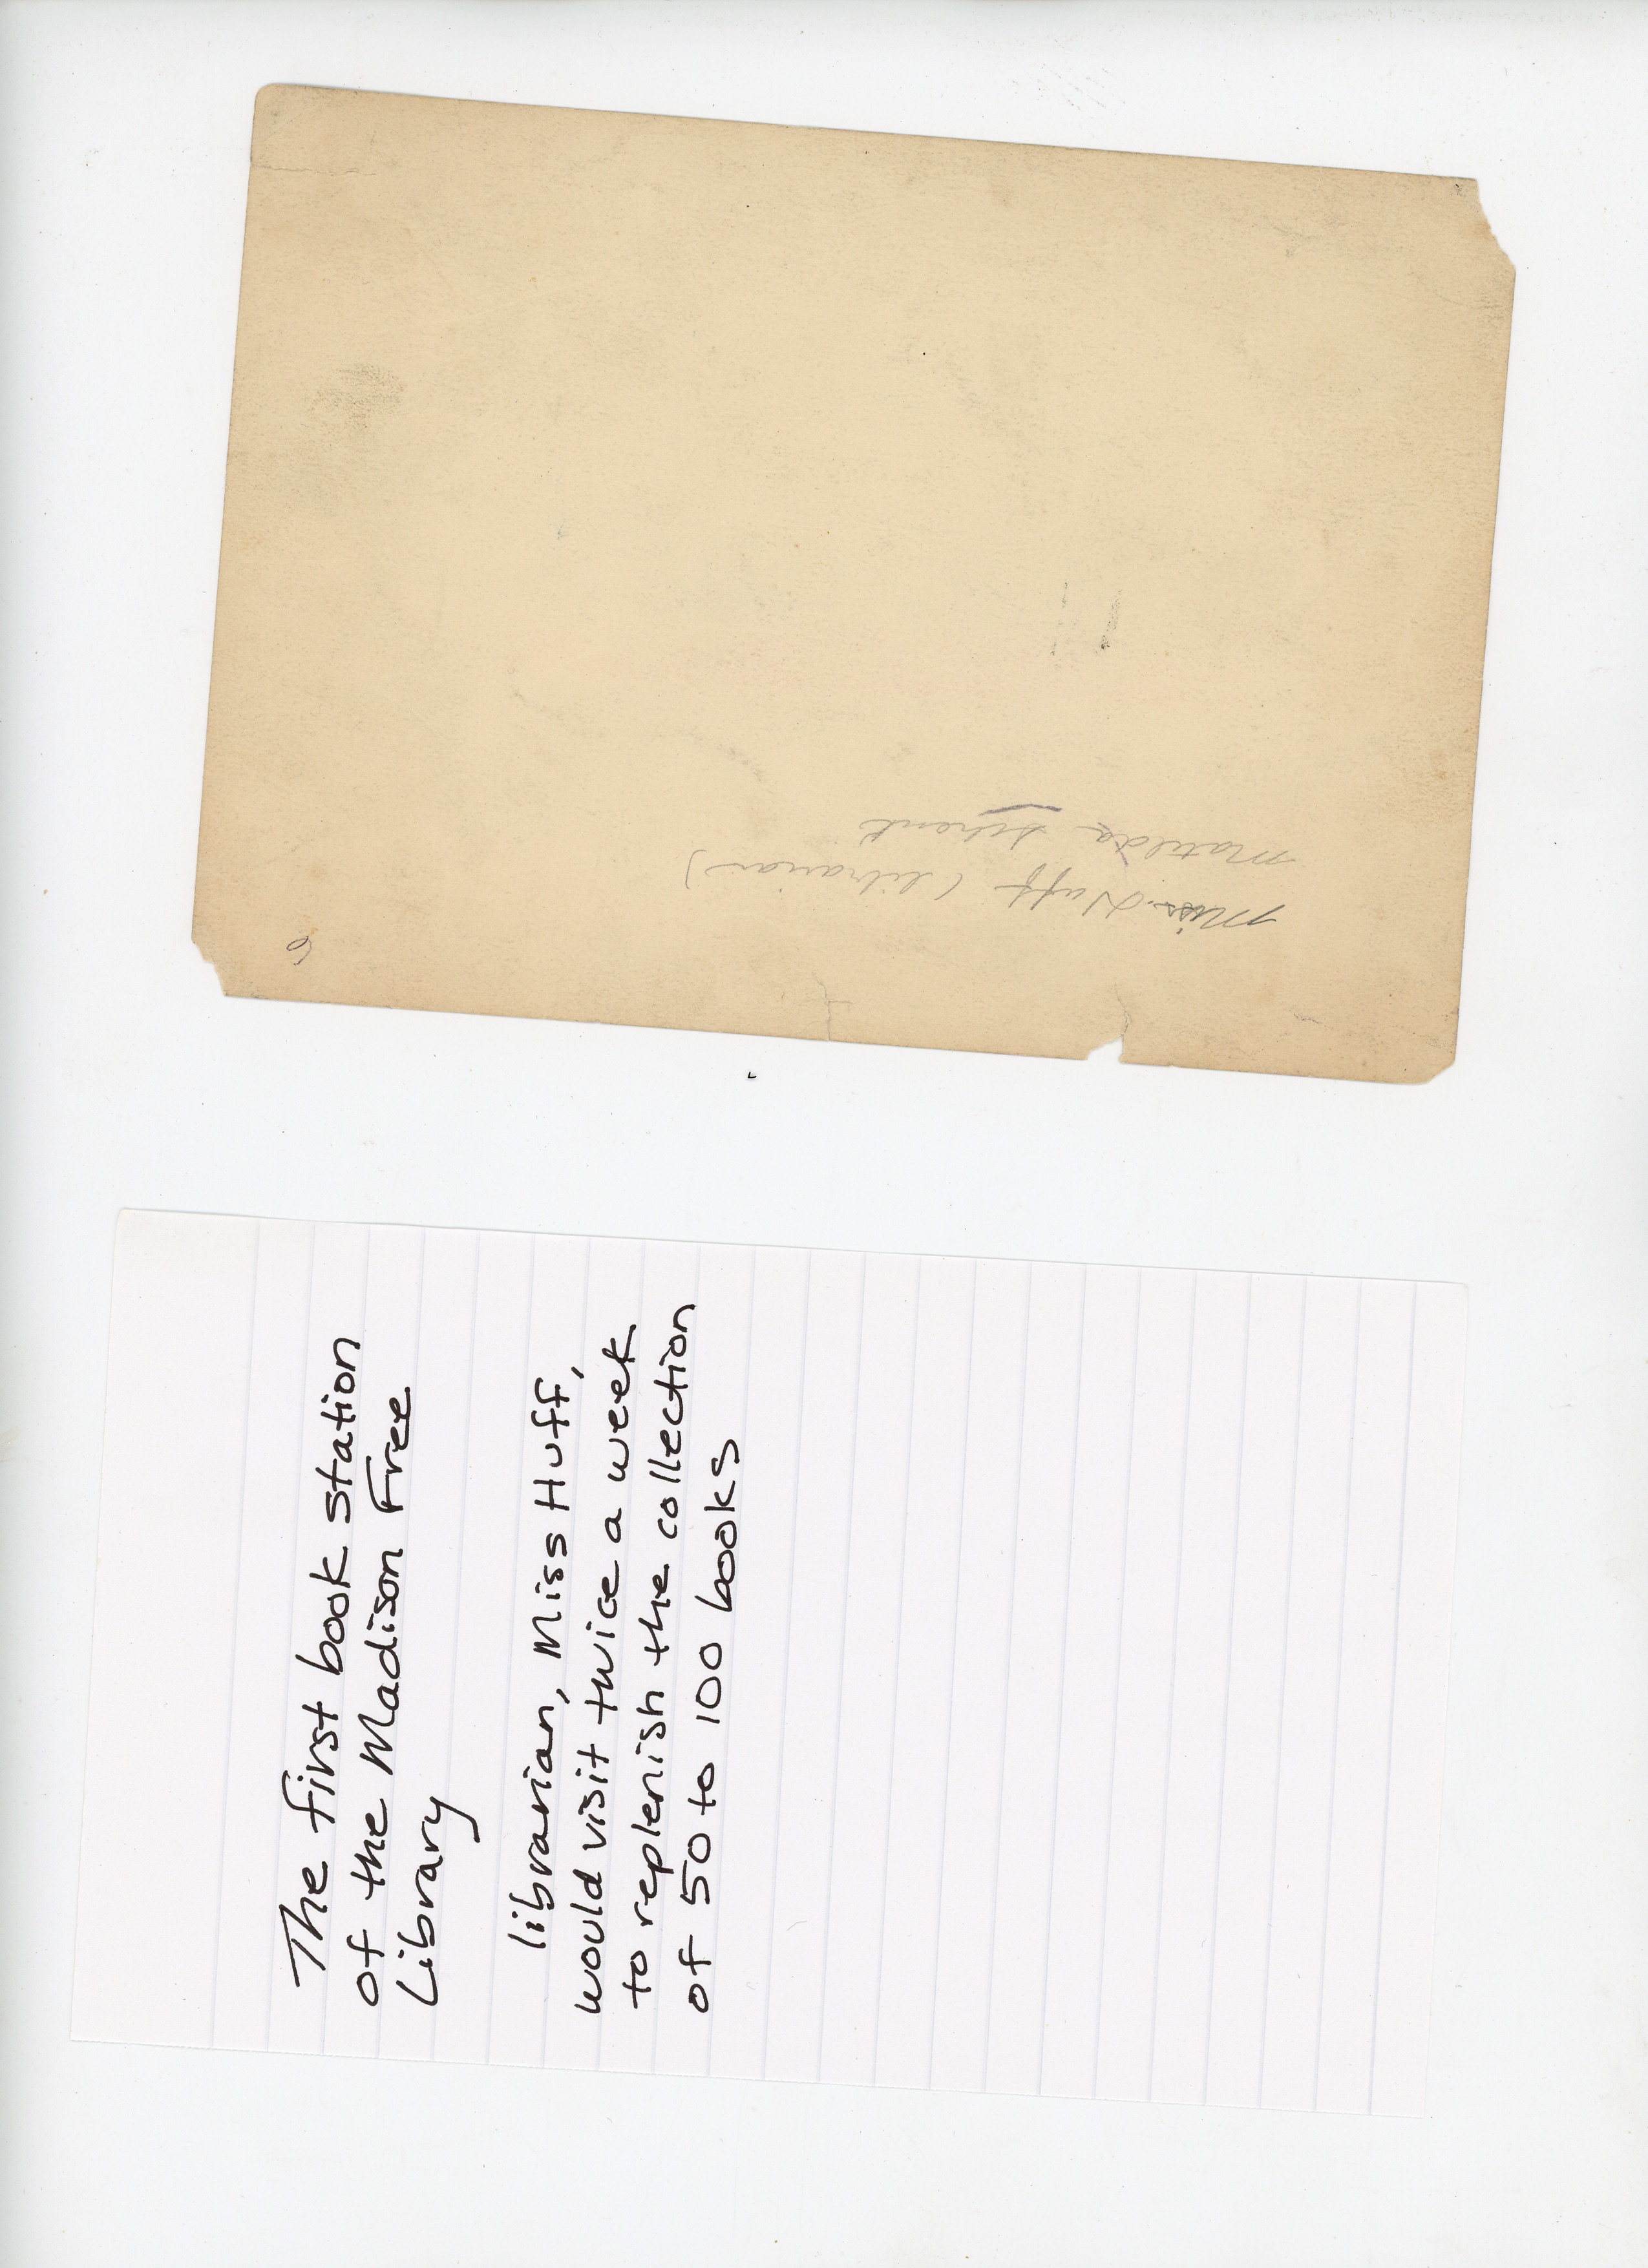 Miss. Huff (librarian)
Matilda Schenk
6
The first book station
of the Madison Free
Library
librarian, Miss Huff,
would visit twice a week
to replenish the collection
of 50 to 100 books